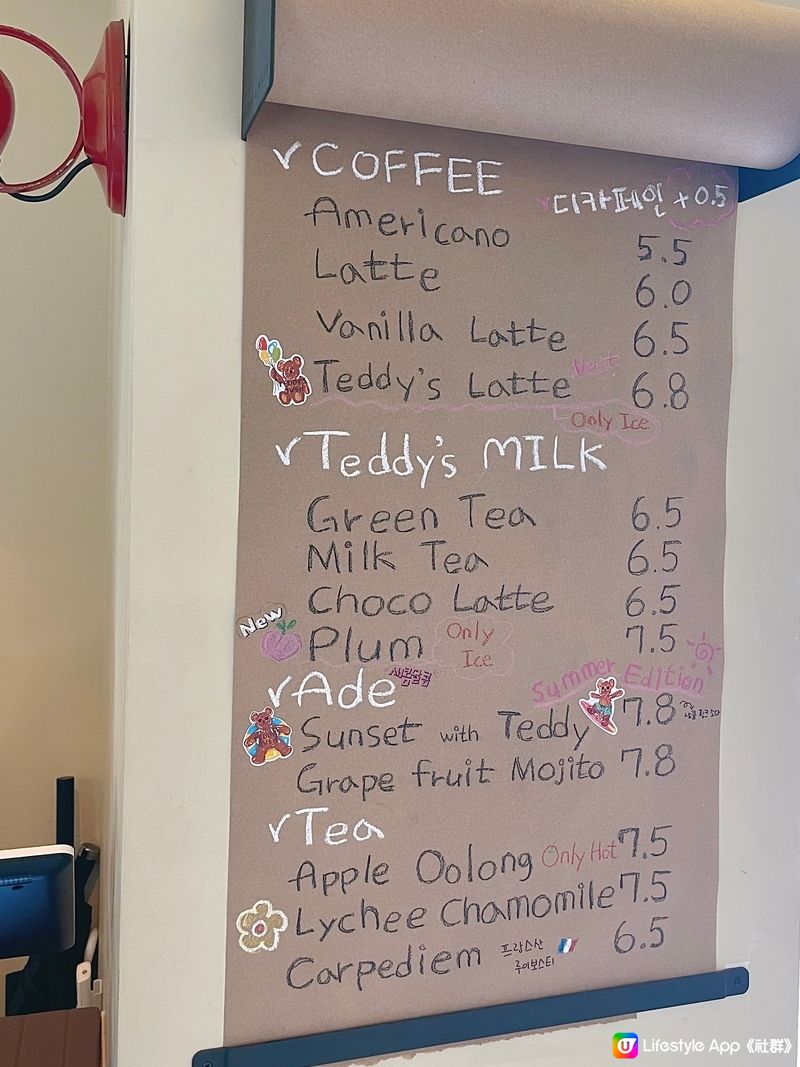 ✓COFFEE
디카페인 +0.5
Americano 5.5
Latte 6.0
Vanilla Latte 6.5
Teddy's Latte Best 6.8
Only Ice
✓Teddy's MILK
Green Tea 6.5
Milk Tea 6.5
Choco Latte 6.5
New Plum Only Ice 7.5
새콤달콤
✓Ade
Summer Edition
Sunset with Teddy 7.8
Grape fruit Mojito 7.8
✓Tea
Apple Oolong Only Hot 7.5
Lychee Chamomile 7.5
Carpediem 프랑스산 루이보스티 6.5
Lifestyle App《社群》